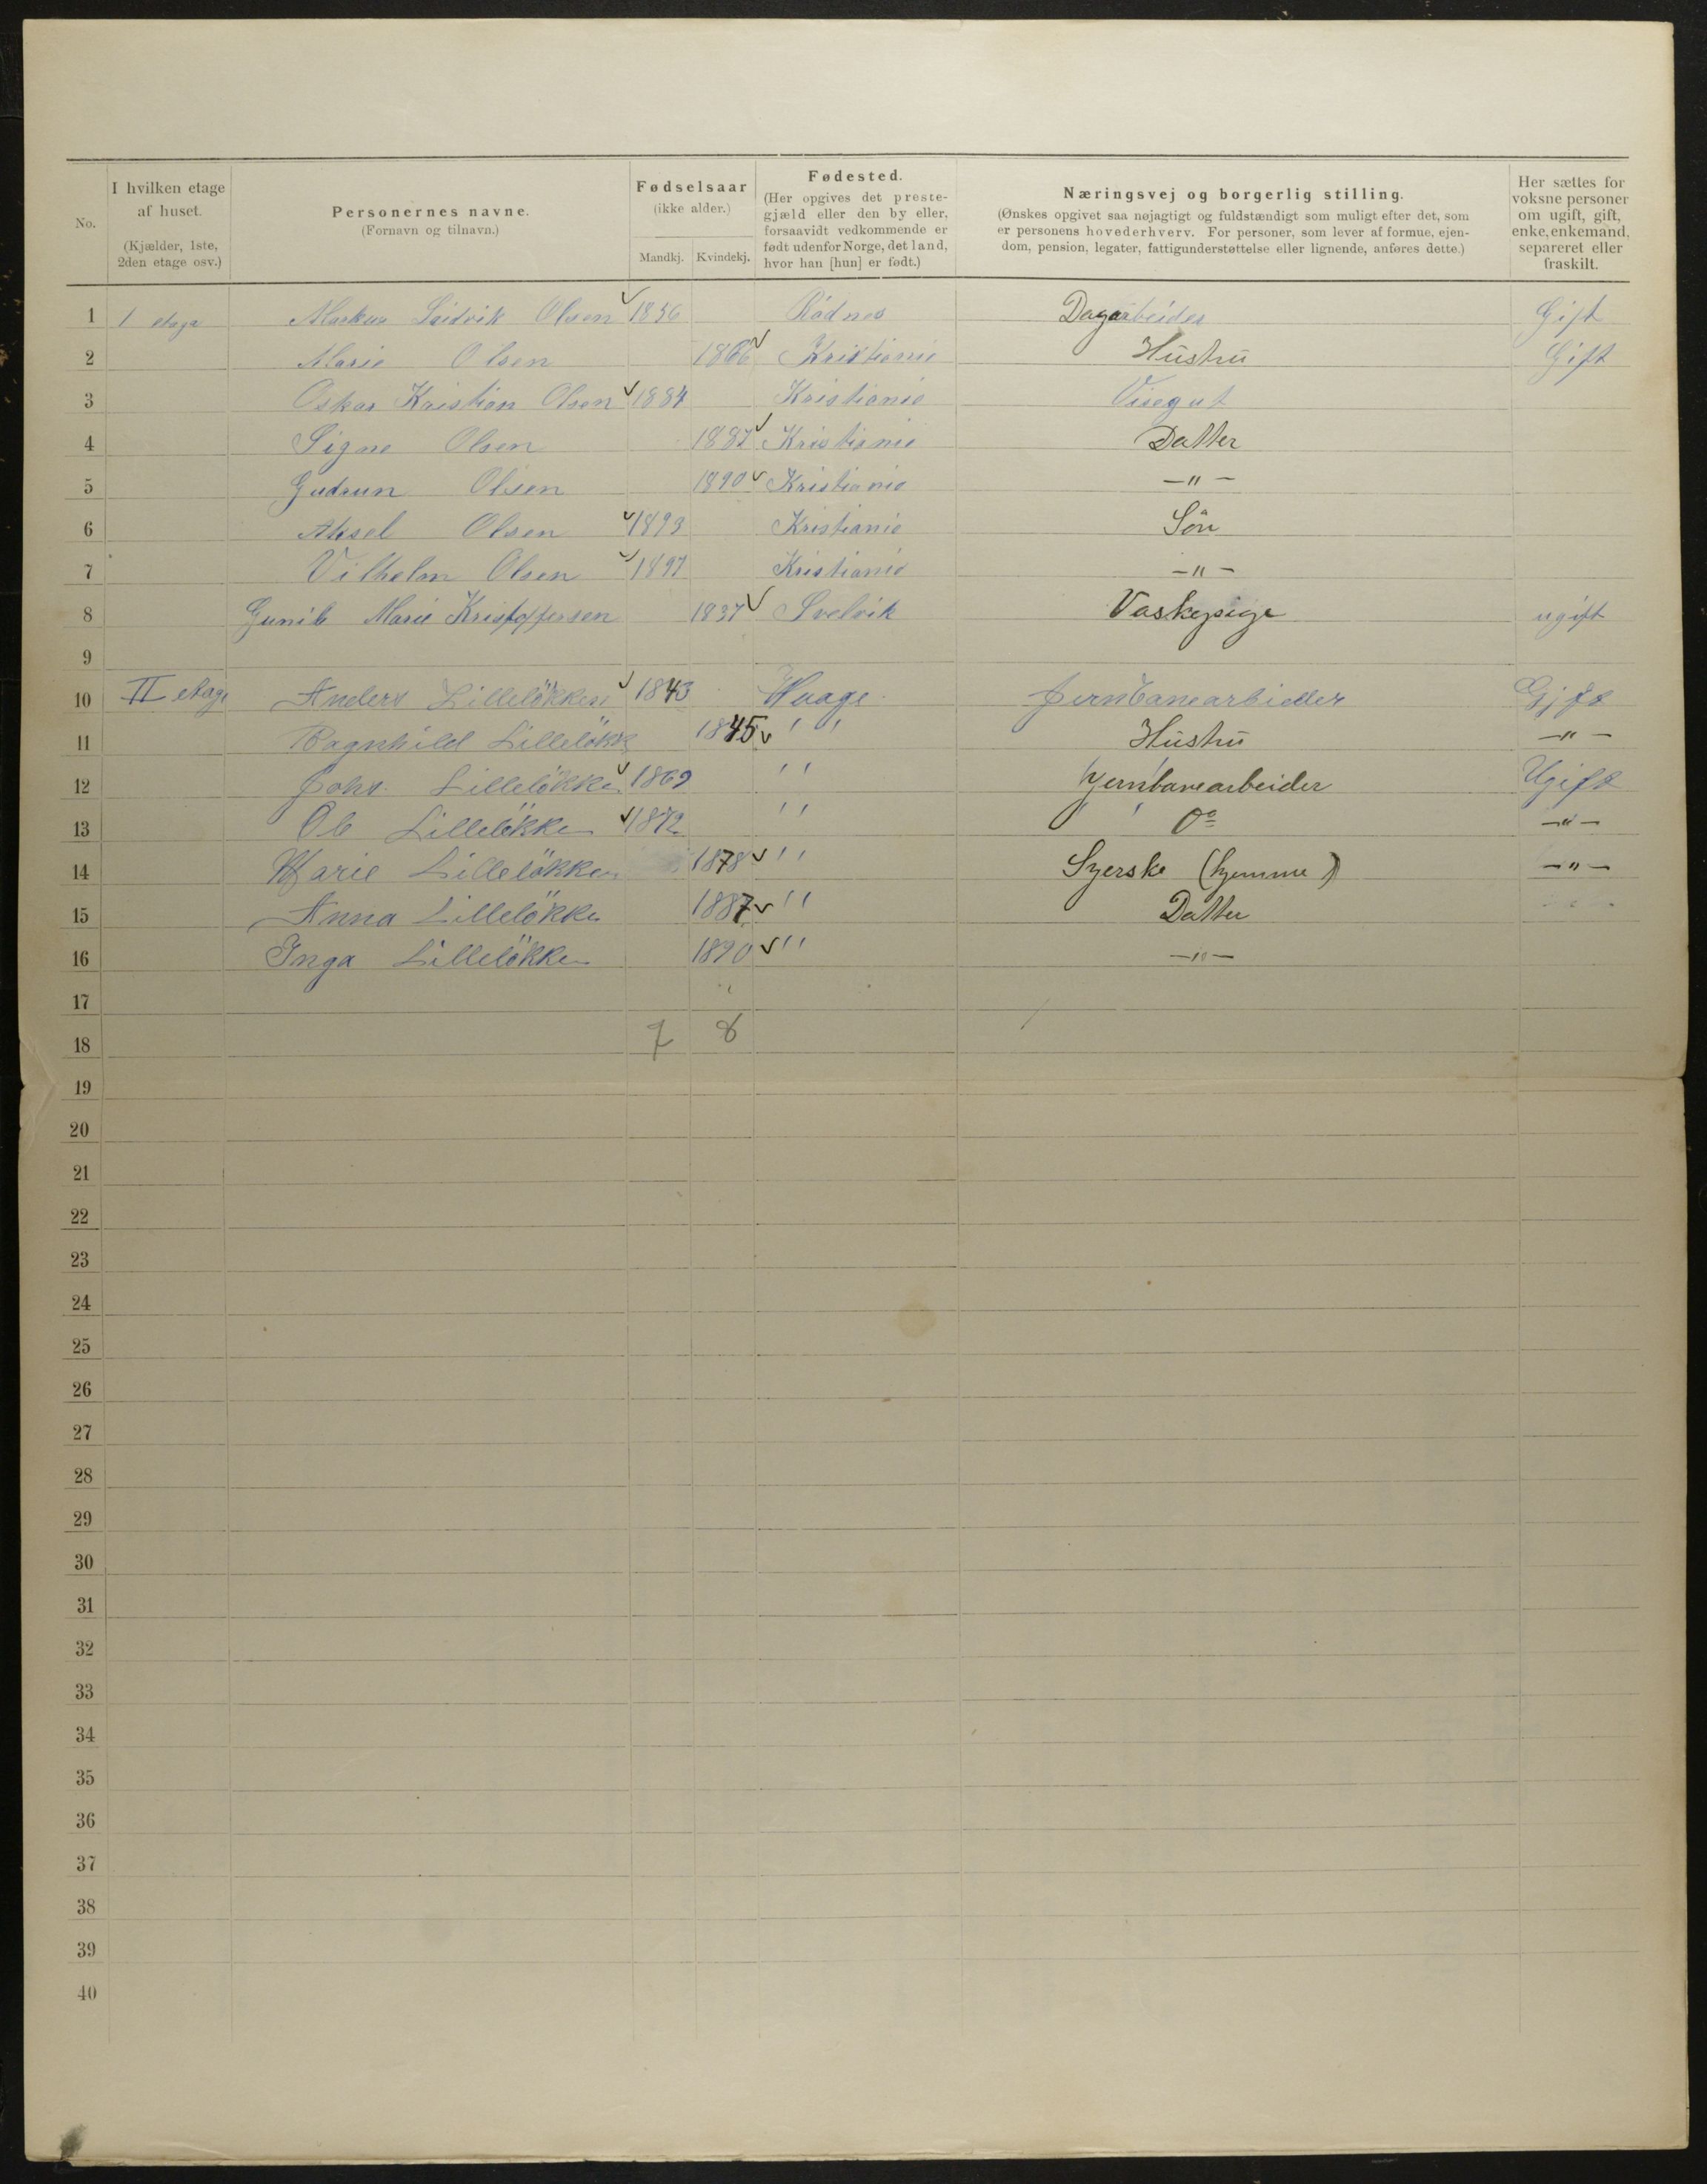 No.
I hvilken etage
af huset.
(Kjælder, 1ste,
2den etage osv.)
Personernes navne.
(Fornavn og tilnavn.)
Fødselsaar
(ikke alder.)
Mandkj. Kvindekj.
Fødested.
(Her opgives det preste-
gjæld eller den by eller,
forsaavidt vedkommende er
født udenfor Norge, det land,
hvor han [hun] er født.)
Næringsvej og borgerlig stilling.
(Ønskes opgivet saa nøjagtigt og fuldstændigt som muligt efter det, som
er personens hovederhverv. For personer, som lever af formue, ejen-
dom, pension, legater, fattigunderstøttelse eller lignende, anføres dette.)
Her sættes for
voksne personer
om ugift, gift,
enke, enkemand,
separeret eller
fraskilt.
1 1 etage Markus Olsen 1856 Rödnes Dagarbeider Gift
2 Marie Olsen 1866 Kristiania Hustru Gift
3 Oskar Kristian Olsen 1884 Kristiania Visegut
4 Signe Olsen 1887 Kristiania Datter
5 Gudrun Olsen 1890 Kristiania -"-
6 Aksel Olsen 1893 Kristiania Sön
7 Vilhelm Olsen 1897 Kristiania -"-
8 Gunil Marie Kristoffersen 1837 Svelvik Vaskepige ugift
9
10 II etage Anders Lillelökken 1843 Vaage Jernbanearbieder Gift
11 Ragnhild Lillelökk 1845 " Hustru -"-
12 Johs. Lillelökken 1869 " Jernbanearbeider Ugift
13 Ole Lillelökken 1872 " Do -"-
14 Marie Lillelökken 1878 " Syerske (hjemme) -"-
15 Anna Lillelökken 1887 " Datter
16 Inga Lillelökken 1890 " -"-
17
18 7 8
19
20
21
22
23
24
25
26
27
28
29
30
31
32
33
34
35
36
37
38
39
40